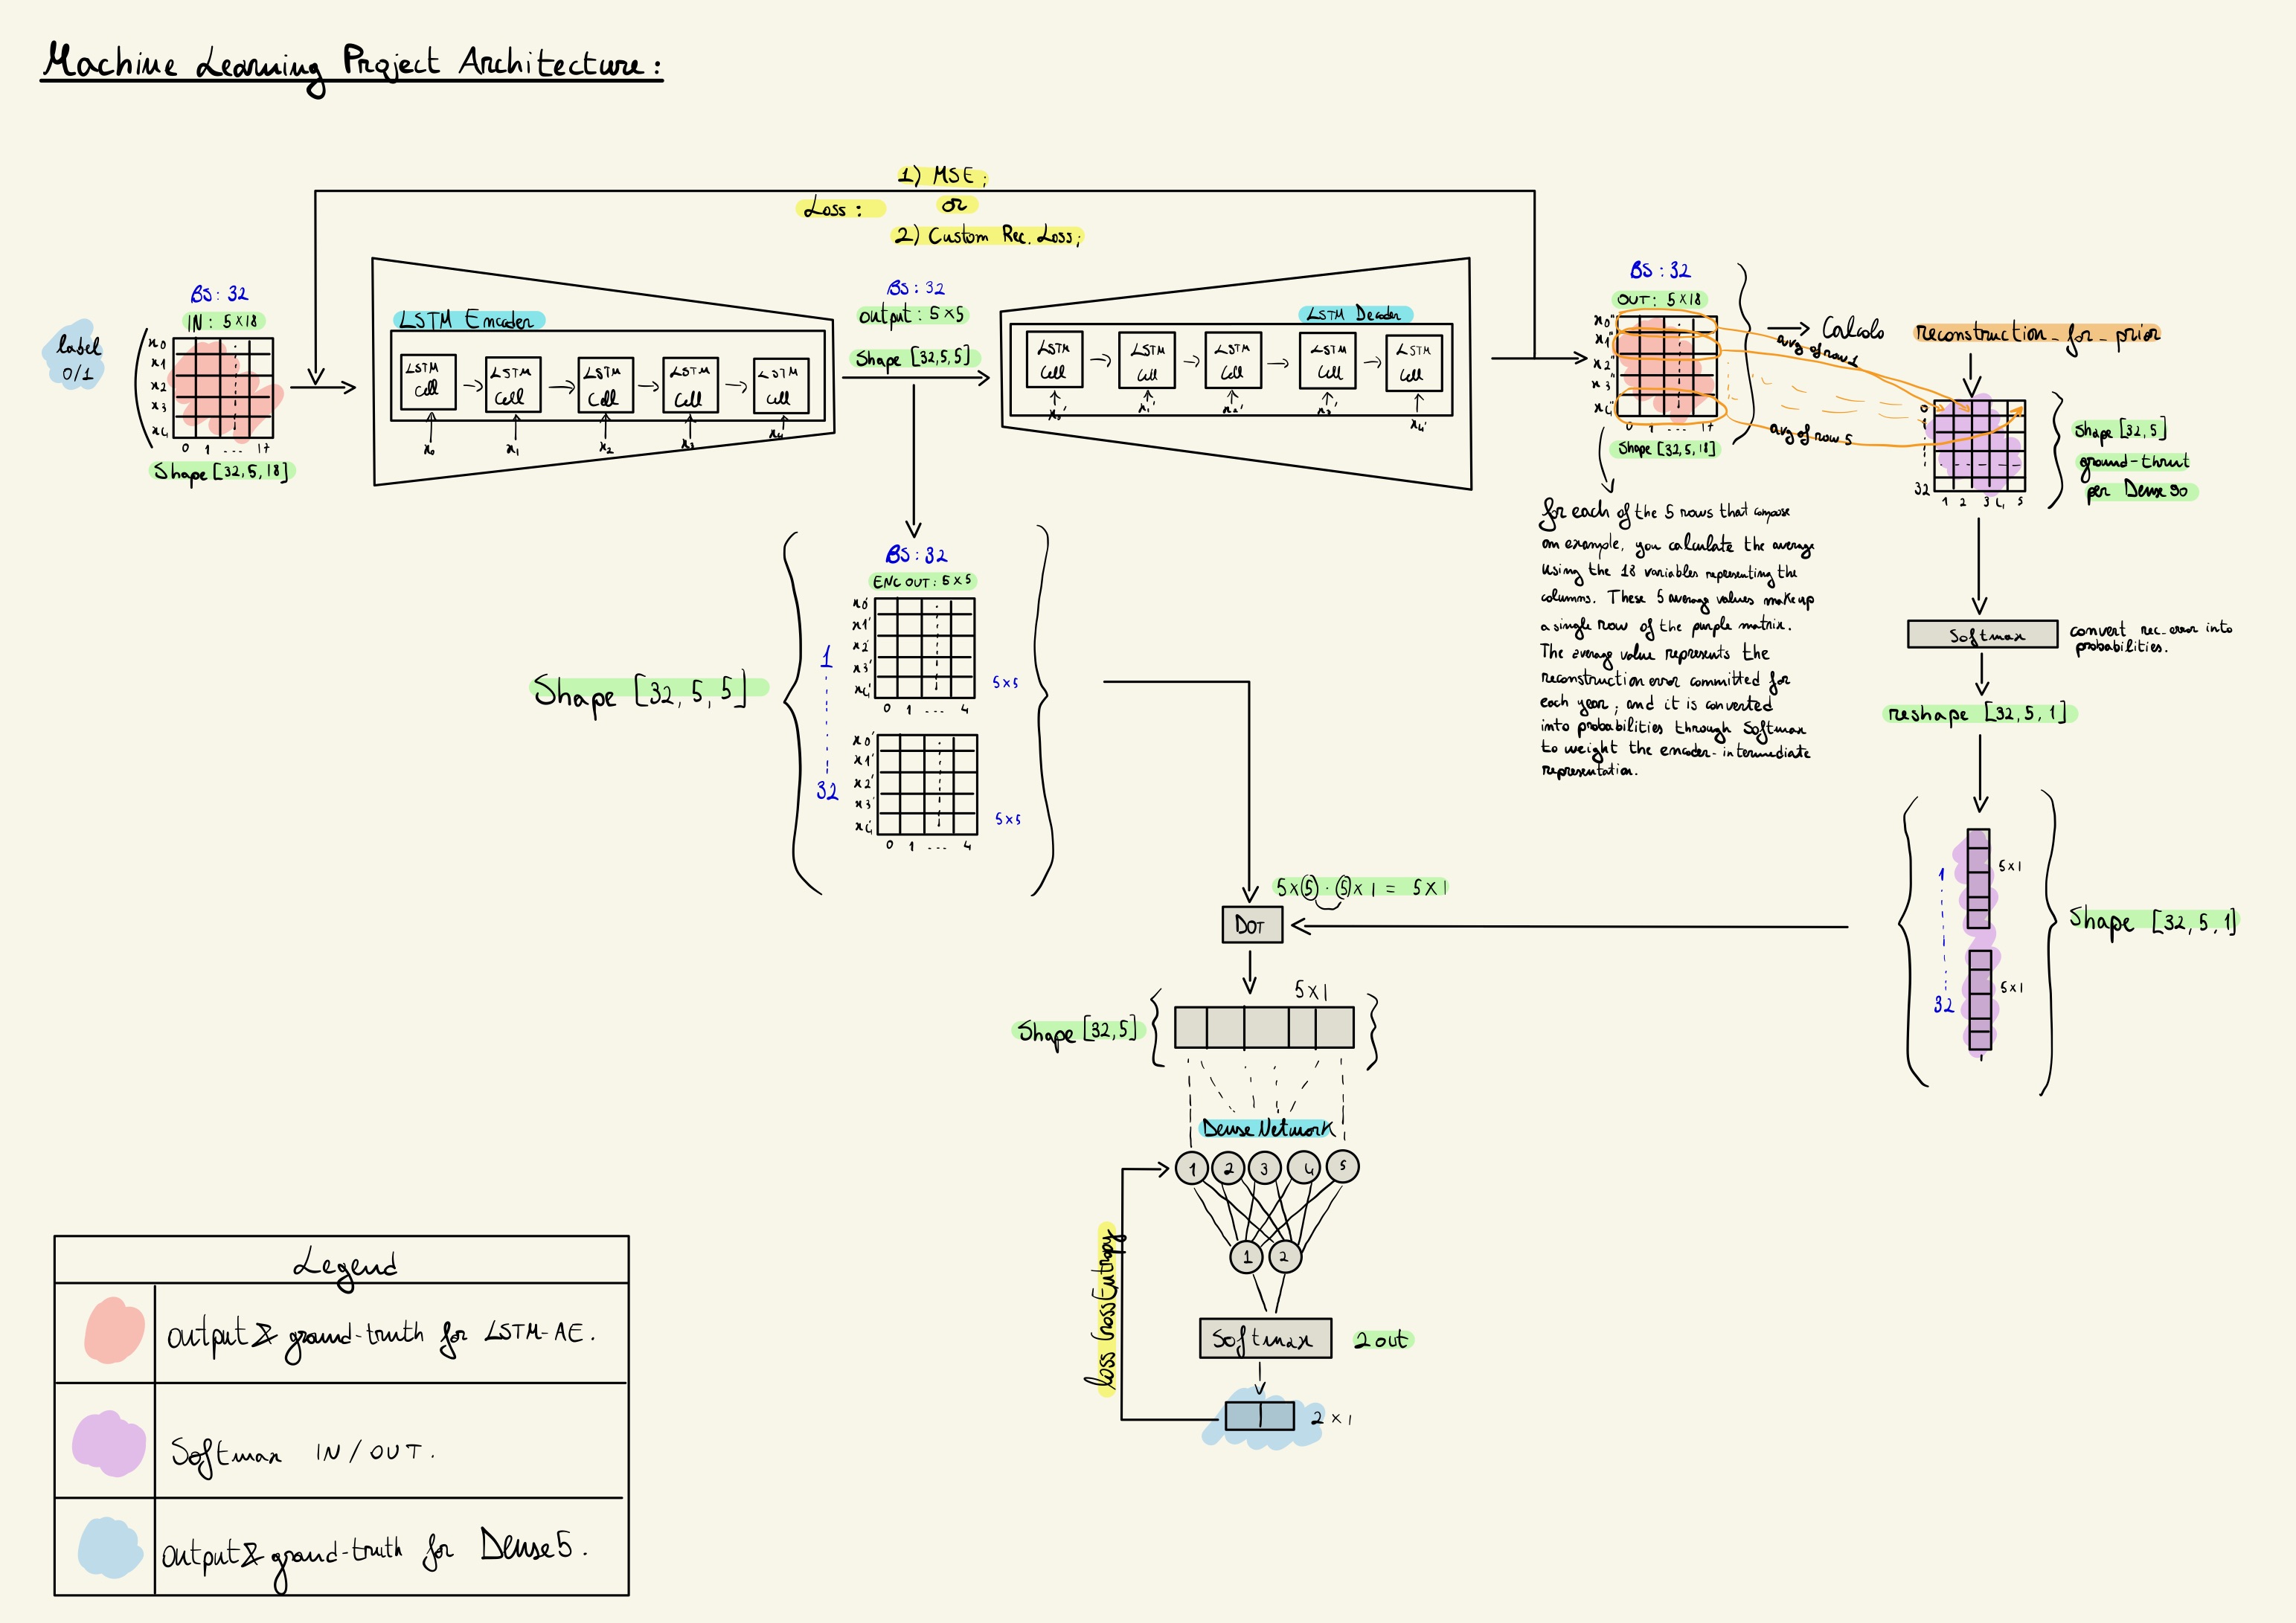 Machine Learning Project Architecture:
1) MSE;
Loss: or
2) Custom Rec. Loss;
label
0/1
BS: 32
IN: 5x18
x0
x1
x2
x3
x4
0 1 ... 17
Shape [32,5,18]
LSTM Encoder
LSTM Cell
LSTM Cell
LSTM Cell
LSTM Cell
LSTM Cell
x0 x1 x2 x3 x4
BS: 32
output: 5x5
Shape [32,5,5]
LSTM Decoder
LSTM Cell
LSTM Cell
LSTM Cell
LSTM Cell
LSTM Cell
x0' x1' x2' x3' x4'
BS: 32
OUT: 5x18
x0"
x1"
x2"
x3"
x4"
0 1 ... 17
Shape [32,5,18]
Calcolo reconstruction_for_prior
avg of row 1
avg of row 5
0
32
1 2 3 4 5
Shape [32,5]
ground-thrut
per Dense 90
for each of the 5 rows that compose
an example, you calculate the average
using the 18 variables representing the
columns. These 5 average values make up
a single row of the purple matrix.
The average value represents the
reconstruction error committed for
each year; and it is converted
into probabilities through Softmax
to weight the encoder-intermediate
representation.
Softmax
convert rec_error into
probabilities.
reshape [32,5,1]
BS: 32
ENC OUT: 5x5
x0'
x1'
x2'
x3'
x4'
0 1 ... 4
5x5
Shape [32,5,5]
1
32
x0'
x1'
x2'
x3'
x4'
0 1 ... 4
5x5
5x5 · 5x1 = 5x1
DOT
1
32
5x1
5x1
Shape [32,5,1]
5x1
Shape [32,5]
Dense Network
1 2 3 4 5
1 2
loss CrossEntropy
Softmax
2 out
2x1
Legend
output & ground-truth for LSTM-AE.
Softmax IN/OUT.
output & ground-truth for Dense5.